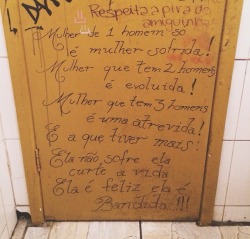 Respeita a pira da
amiguinha
Mulher de 1 homem só
é mulher sofrida!
Mulher que tem 2 homens
é evoluida!
Mulher que tem 3 homens
é uma atrevida!
E a que tiver mais!
Ela não sofre ela
curte a vida
Ela é feliz ela é
Bandida!!!